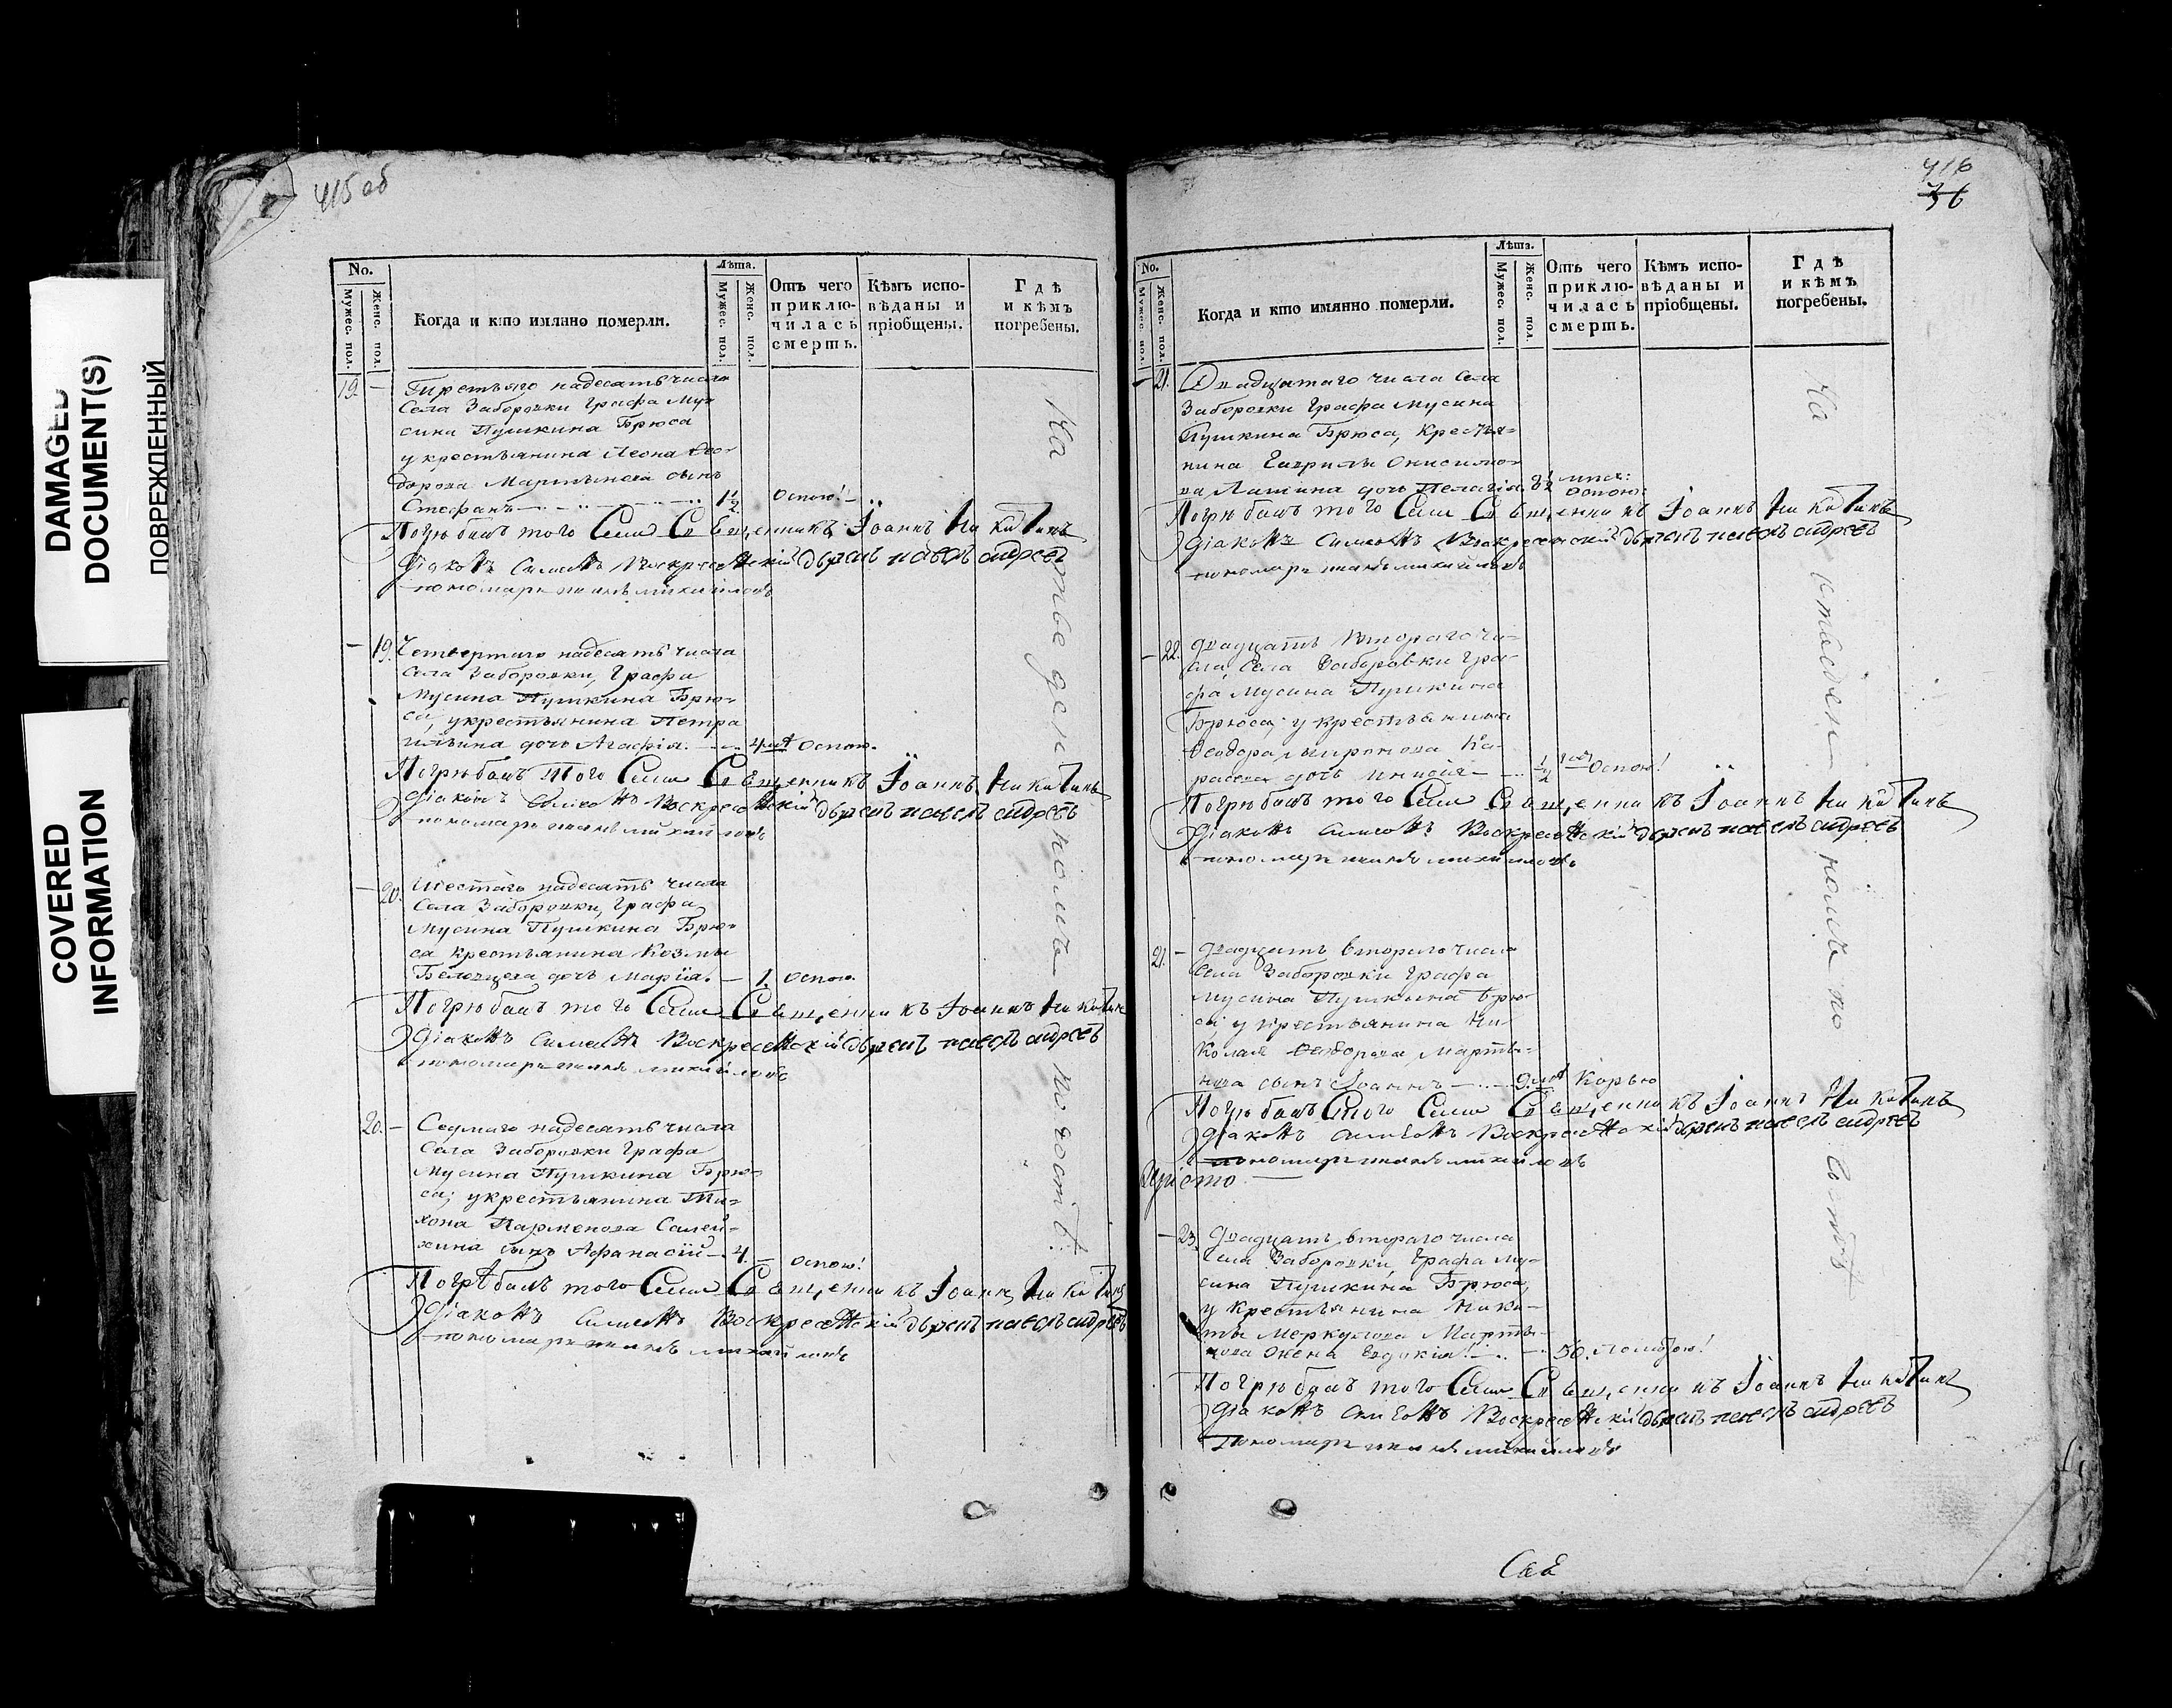 DAMAGED
DOCUMENT(S)
ПОВРЕЖДЕННЫЙ
COVERED
INFORMATION
415 об
No.
Мужес. пол.
Женс. пол.
Когда и кто имянно померли.
Лѣта.
Мужес. пол.
Женс. пол.
Отъ чего
приклю-
чилась
смерть.
Кѣмъ испо-
вѣданы и
пріобщены.
Гдѣ
и кѣмъ
погребены.
19. — Третьяго надесять числа
Села Заборовки Графа Му-
сина Пушкина Брюса
у крестьянина Леона Ѳео-
дорова Мартынова сынъ
Стефанъ 1 1/2 Оспою!
Погребалъ того Села Священникъ Іоаннъ Никитинъ
Діаконъ Симеонъ Воскресенскій дьячекъ павелъ андреевъ
пономарь иванъ михайловъ
— 19. Четвертаго надесять числа
Села Заборовки, Графа
Мусина Пушкина Брю-
са, у крестьянина Петра
Ильина дочь Агафія. 4 Оспою.
Погребалъ того Села Священникъ Іоаннъ Никитинъ
Діаконъ Симеонъ Воскресенскій дьячекъ павелъ андреевъ
пономарь иванъ михайловъ
— 20. Шестаго надесять числа
Села Заборовки, Графа
Мусина Пушкина Брю-
са крестьянина Козмы
дочь Марѳа. — 1. Оспою.
Погребалъ того Села Священникъ Іоаннъ Никитинъ
Діаконъ Симеонъ Воскресенскій дьячекъ павелъ андреевъ
пономарь иванъ михайловъ
20. — Седмаго надесять числа
Села Заборовки Графа
Мусина Пушкина Брю-
са; у крестьянина Ти-
хона Парменова
сынъ Афанасій — 4. — Оспою!
Погрѣбалъ того Села Священникъ Іоаннъ Никитинъ
Діаконъ Симеонъ Воскресенскій дьячекъ павелъ андреевъ
пономарь иванъ михайловъ
На отведенномъ погостѣ
416
36
No.
Мужес. пол.
Женс. пол.
Когда и кто имянно померли.
Лѣта.
Мужес. пол.
Женс. пол.
Отъ чего
приклю-
чилась
смерть.
Кѣмъ испо-
вѣданы и
пріобщены.
Гдѣ
и кѣмъ
погребены.
— 21. Двадцатаго числа Села
Заборовки Графа Мусина
Пушкина Брюса, Крестья-
нина Гаврилы Онисимо-
ва дочь Пелагія. Оспою:
Погребалъ того Села Священникъ Іоаннъ Никитинъ
Діаконъ Симеонъ Воскресенскій дьячекъ павелъ андреевъ
пономарь иванъ михайловъ
— 22. Двадцать Втораго чи-
сла, Села Заборовки Гра-
фа Мусина Пушкина
Брюса, у крестьянина
Ѳеодора Миронова Ка-
дочь 1/2 Оспою!
Погребалъ того Села Священникъ Іоаннъ Никитинъ
Діаконъ Симеонъ Воскресенскій дьячекъ павелъ андреевъ
пономарь иванъ михайловъ
21. — Двадцать втораго числа
Села Заборовки Графа
Мусина Пушкина Брю-
са, у крестьянина Ни-
колая Ѳеодорова, Марты-
нова сынъ Іоаннъ 9. Корью
Погребалъ того Села Священникъ Іоаннъ Никитинъ
Діаконъ Симеонъ Воскресенскій дьячекъ павелъ андреевъ
пономарь иванъ михайловъ
— 23. Двадцать втораго числа
Села Заборовки, Графа Му-
сина Пушкина Брюса,
у крестьянина Ники-
ты Меркулова Марты-
нова жена Евдокія! 50.
Погребалъ того Села Священникъ Іоаннъ Никитинъ
Діаконъ Симеонъ Воскресенскій дьячекъ павелъ андреевъ
Пономарь иванъ михайловъ
На отведенномъ погостѣ